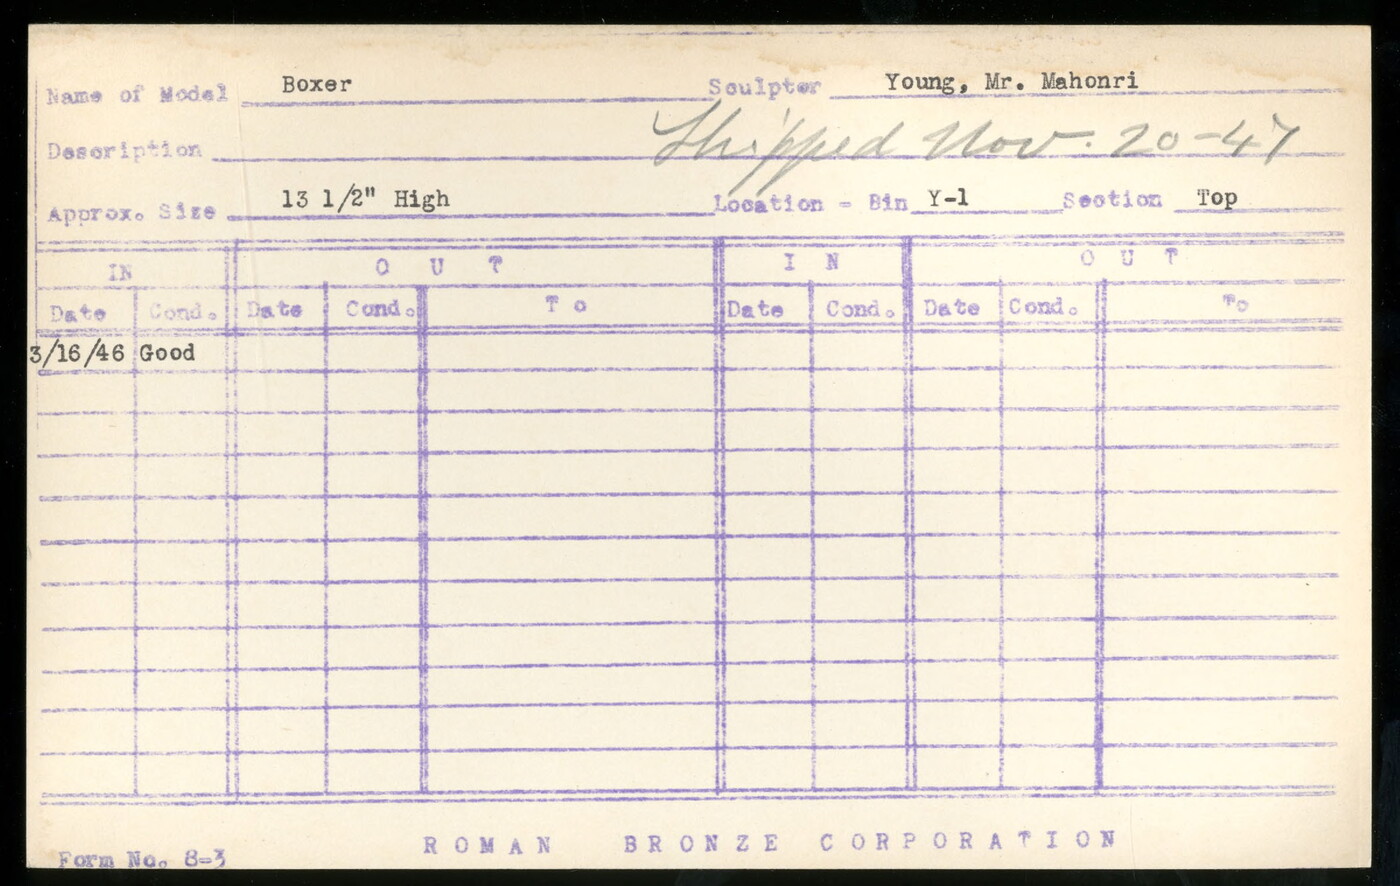 Name of Model Boxer Sculptor Young, Mr. Mahonri
Shipped Nov. 20-47
Description
Approx. Size 13 1/2" High Location - Bin Y-1 Section Top
IN OUT IN OUT
Date Cond. Date Cond. To Date Cond. Date Cond. To
3/16/46 Good
ROMAN BRONZE CORPORATION
Form No. 8-3